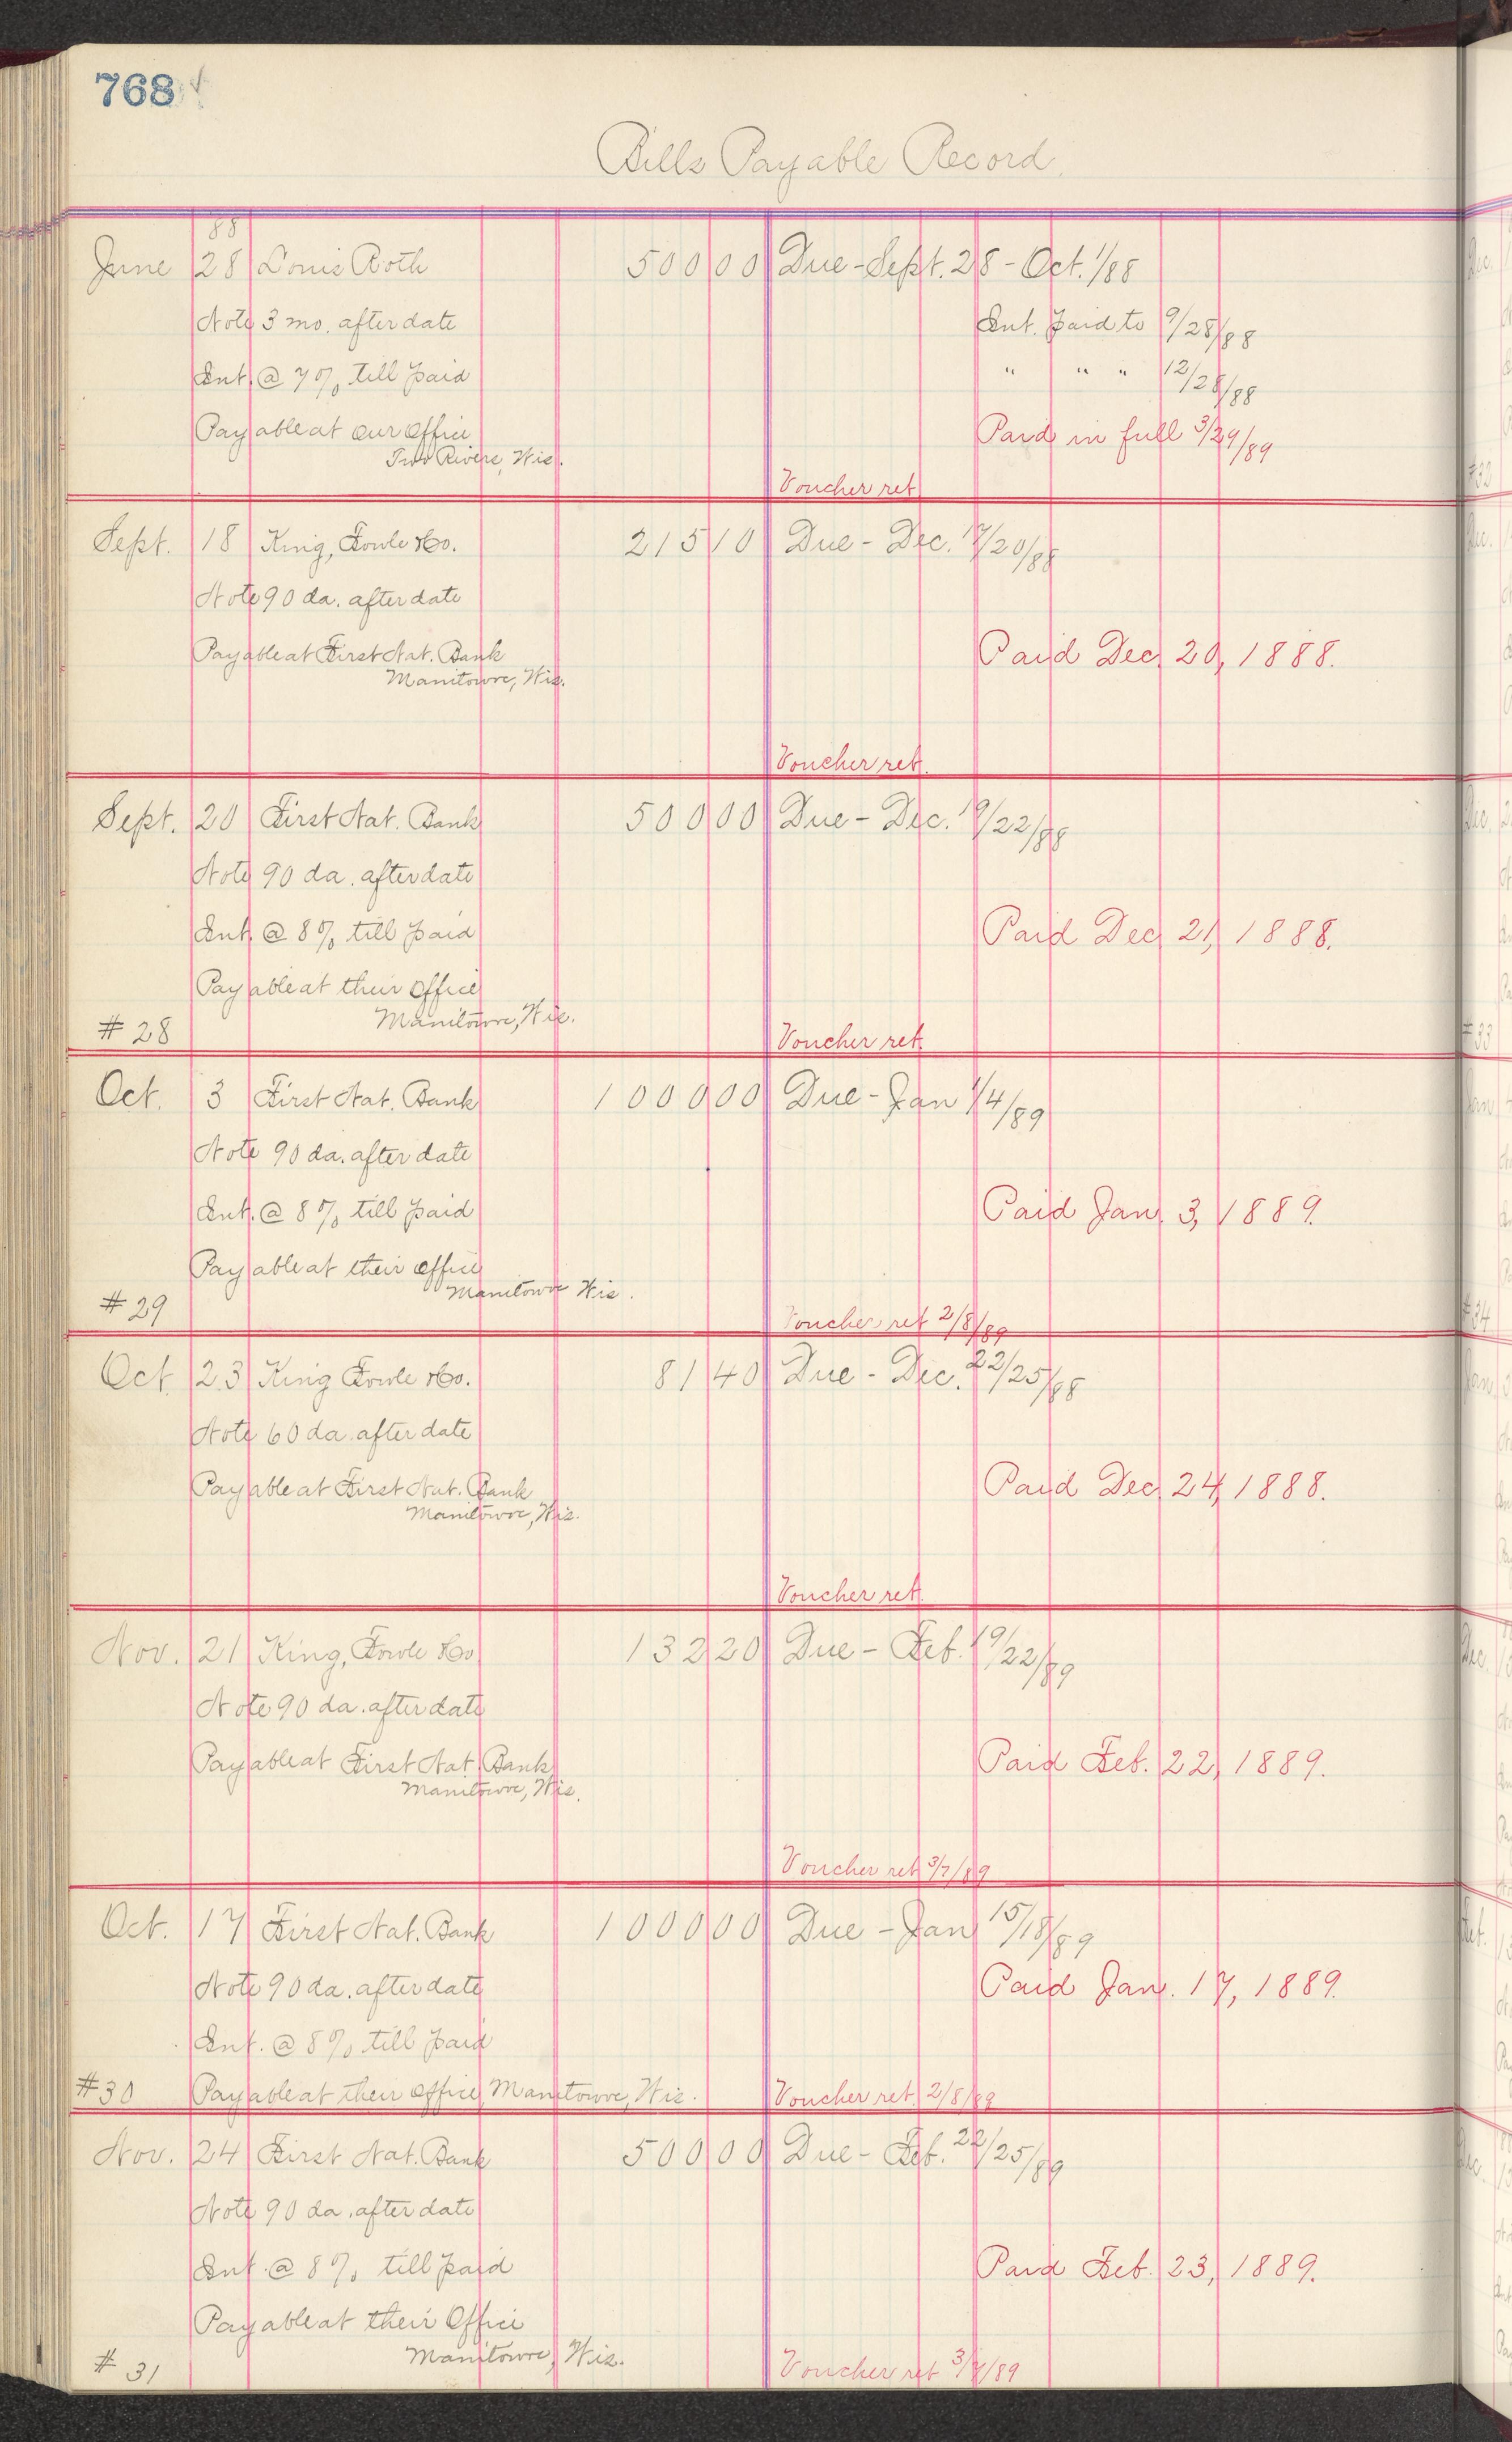 768
Bills Payable Record.
88
June 28 Louis Roth 500 00 Due - Sept. 28 - Oct. 1/88
Note 3 mo. after date Int. paid to 9/28/88
Int. @ 7% till paid " " " 12/28/88
Payable at our office Paid in full 3/29/89
Two Rivers, Wis.
Voucher ret
Sept. 18 King, Fowle & Co. 215 10 Due - Dec. 17/20/88
Note 90 da. after date
Payable at First Nat. Bank Paid Dec. 20, 1888.
Manitowoc, Wis.
Voucher ret.
Sept. 20 First Nat. Bank 500 00 Due - Dec. 19/22/88
Note 90 da. after date
Int. @ 8% till paid Paid Dec 21, 1888.
Payable at their office
Manitowoc, Wis.
# 28 Voucher ret.
Oct. 3 First Nat. Bank 1000 00 Due - Jan 1/4/89
Note 90 da. after date
Int. @ 8% till paid Paid Jan. 3, 1889.
Payable at their office
Manitowoc Wis.
# 29 Voucher ret 2/8/89
Oct 23 King Fowle & Co. 81 40 Due - Dec. 22/25/88
Note 60 da. after date
Payable at First Nat. Bank Paid Dec 24, 1888.
Manitowoc, Wis.
Voucher ret.
Nov. 21 King, Fowle & Co 132 20 Due - Feb. 19/22/89
Note 90 da. after date
Payable at First Nat. Bank Paid Feb. 22, 1889.
Manitowoc, Wis.
Voucher ret 3/7/89
Oct. 17 First Nat. Bank 1000 00 Due - Jan 15/18/89
Note 90 da. after date Paid Jan. 17, 1889.
Int. @ 8% till paid
#30 Payable at their office, Manitowoc, Wis. Voucher ret. 2/8/89
Nov. 24 First Nat. Bank 500 00 Due - Feb. 22/25/89
Note 90 da. after date
Int. @ 8% till paid Paid Feb. 23, 1889.
Payable at their Office
Manitowoc, Wis.
# 31 Voucher ret 3/7/89